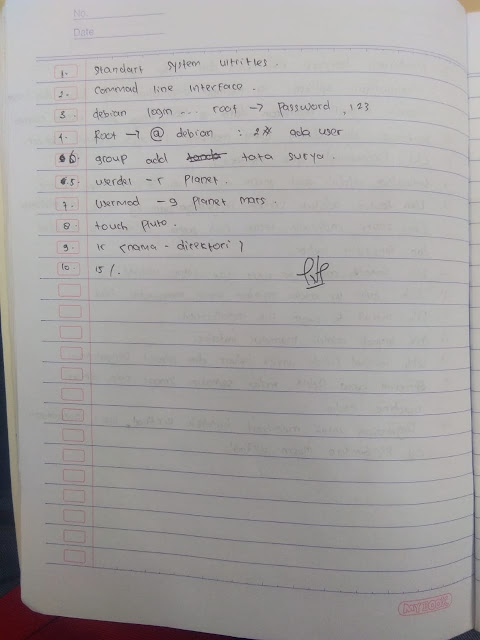 No.
Date
1. Standart system ultritles.
2. Commad line Interface.
3. debian login ... root → password, 123
4. Root → @ debian : 2x ada user
6. group add tata surya.
5. userdel -r planet.
7. Usermod -g planet mars.
8. touch pluto.
9. ls (nama - direktori)
10. ls /.
MYBOOK